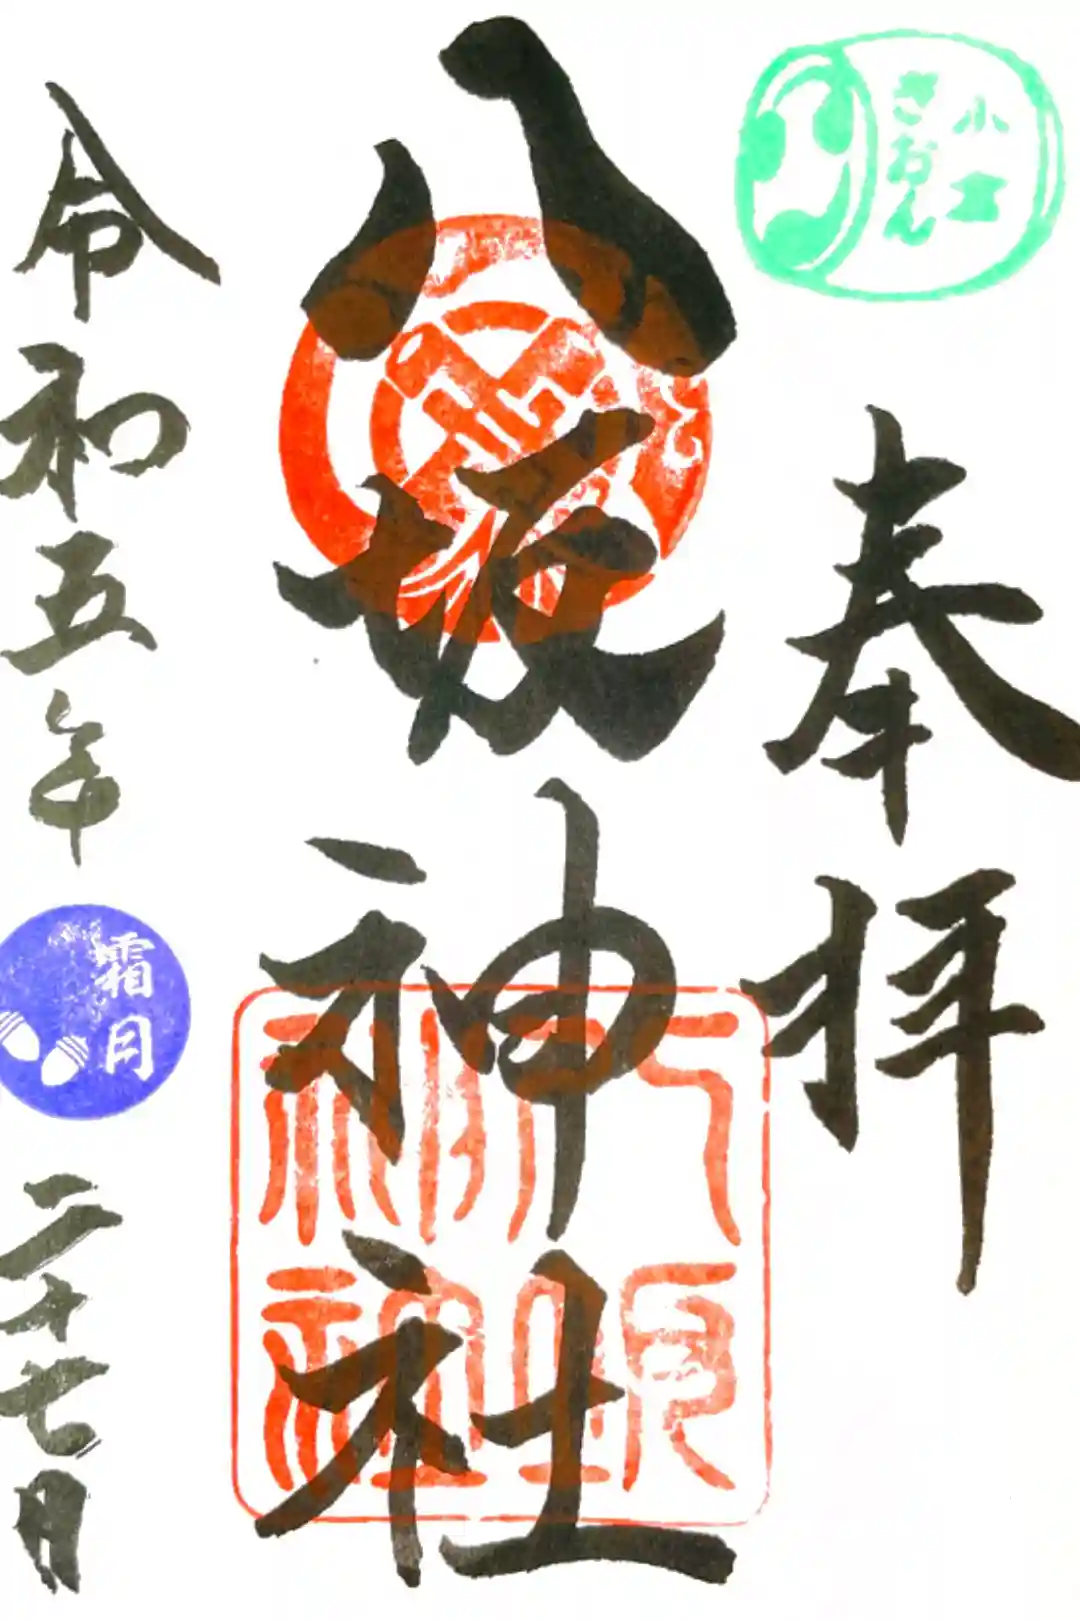 小倉
ぎおん
奉拝
八坂神社
八坂神社
令和五年
霜月
二十七日